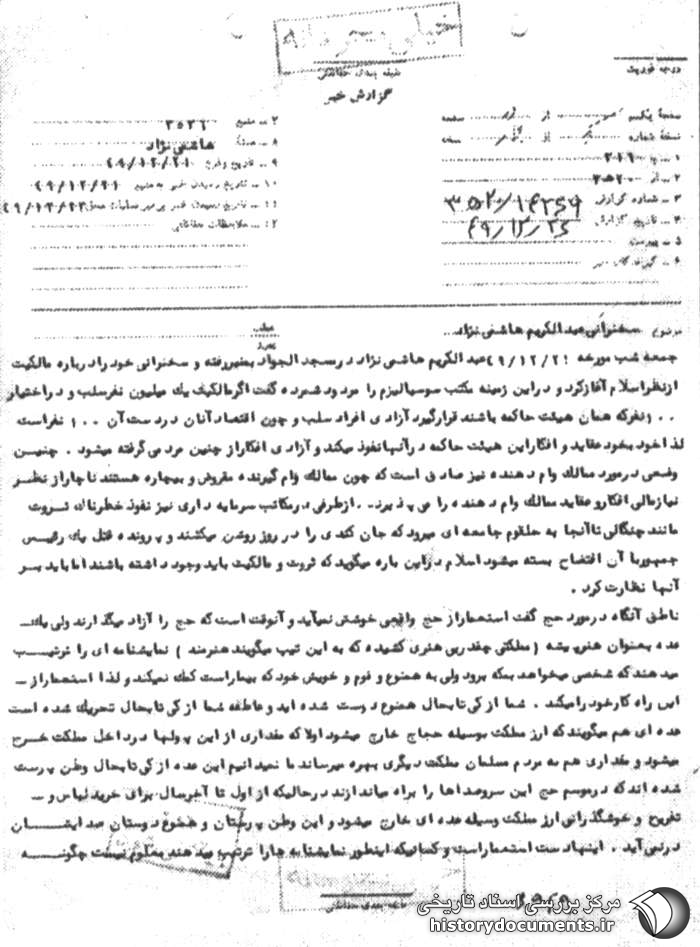 خیلی محرمانه
طبقه بندی حفاظتی
درجه فوریت
گزارش خبر
صفحه یکم از صفحه
نسخه شماره از نسخه
۱ ـ به ۳۱۶
۲ ـ از ۲۰ ه‍ ۳
۳ ـ شماره گزارش
۴ ـ تاریخ گزارش ۴۹/۱۲/۲۶
۵ ـ پیوست
۶ ـ گیرندگان خبر
۷ ـ منبع
۸ ـ هاشمی نژاد
۹ ـ تاریخ وقوع ۴۹/۱۲/۲۱
۱۰ ـ تاریخ رسیدن خبر به منبع ۴۹/۱۲/۲۱
۱۱ ـ تاریخ رسیدن خبر به رهبر عملیات ۴۹/۱۲/۲۳
۱۲ ـ ملاحظات حفاظتی
موضوع سخنرانی عبدالکریم هاشمی نژاد
جمعه شب مورخه ۴۹/۱۲/۲۱ عبدالکریم هاشمی نژاد در مسجد الجواد بمنبر رفته و سخنرانی خود را درباره مالکیت
از نظر اسلام آغاز کرد و در این زمینه مکتب سوسیالیزم را مردود شمرده گفت اگر مالکیت یک میلیون نفر سلب و در اختیار
۱۰۰ نفر که همان هیئت حاکمه باشند قرار گیرد آزادی افراد سلب و چون اقتصاد آنان در دست آن ۱۰۰ نفر است
لذا خود بخود عقاید و افکار این هیئت حاکمه در آنها نفوذ میکند و آزادی افکار از چنین مردمی گرفته میشود . چنین
وضعی در مورد ممالک وام دهنده نیز صادق است که چون ممالک وام گیرنده مقروض و بیچاره هستند ناچار از نظر
نیاز مالی افکار و عقاید ممالک وام دهنده را می پذیرد . از طرفی در مکاتب سرمایه داری نیز نفوذ خطرناک ثروت
مانند چنگالی تا آنجا به حلقوم جامعه ای میرود که جان کندی را در روز روشن میکشند و پرونده قتل یک رئیس
جمهور با آن افتضاح بسته میشود اسلام در این باره میگوید که ثروت و مالکیت باید وجود داشته باشند اما باید بر
آنها نظارت کرد .
ناطق آنگاه در مورد حج گفت استعمار از حج واقعی خوشش نمیآید و آنوقت است که حج را آزاد میگذارند ولی یک
عده بعنوان هنرپیشه ( مملکتی چقدر بی هنری کشیده که به این تیپ میگویند هنرمند ) نمایشنامه ای را ترتیب
میدهند که شخصی میخواهد بمکه برود ولی به همنوع و قوم و خویش خود که بیمار است کمک نمیکند و لذا استعمار از
این راه کار خود را میکند . شما از کی تا بحال همنوع دوست شده اید و عاطفه شما از کی تا بحال تحریک شده است
عده ای هم میگویند که ارز مملکت بوسیله حجاج خارج میشود اولا که مقداری از این پولها در داخل مملکت خرج
میشود و مقداری هم به مردم مسلمان مملکت دیگری بهره میرساند ما نمیدانیم این عده از کی تا بحال وطن پرست
شده اند که در موسم حج این سر و صداها را براه میاندازند در حالیکه از اول تا آخر سال برای خرید لباس و
تفریح و خوشگذرانی ارز مملکت وسیله عده ای خارج میشود و این وطن پرستان و همنوع دوستان صدایشان
در نمی آید . اینها دست استعمار است و کسانیکه اینطور نمایشنامه ها را ترتیب میدهند معلوم نیست چگونه
طبقه بندی حفاظتی
مرکز بررسی اسناد تاریخی
historydocuments.ir